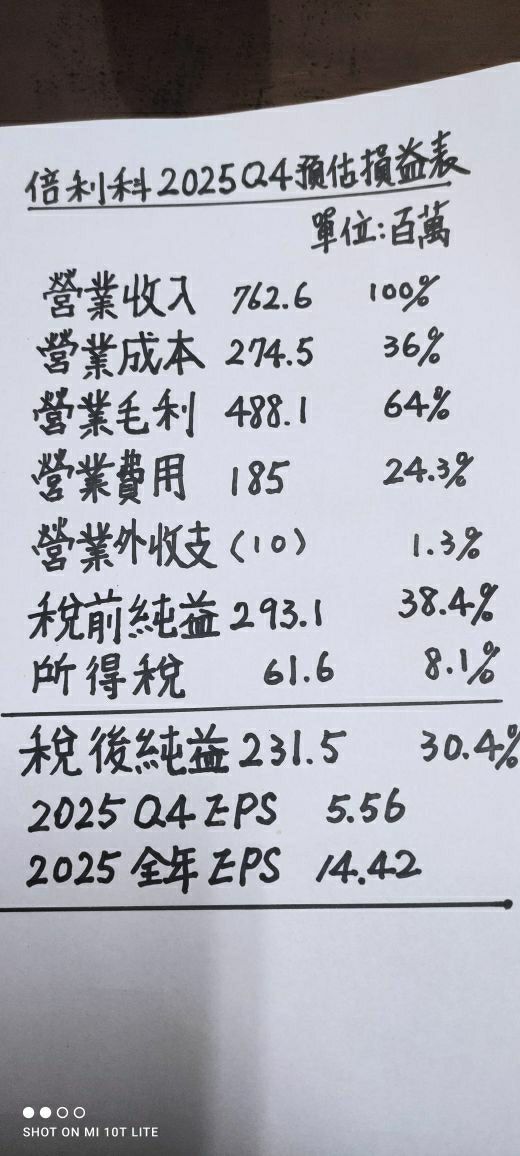 倍利科2025Q4預估損益表
單位:百萬
營業收入 762.6 100%
營業成本 274.5 36%
營業毛利 488.1 64%
營業費用 185 24.3%
營業外收支 (10) 1.3%
稅前純益 293.1 38.4%
所得稅 61.6 8.1%
稅後純益 231.5 30.4%
2025 Q4 EPS 5.56
2025 全年 EPS 14.42
SHOT ON MI 10T LITE